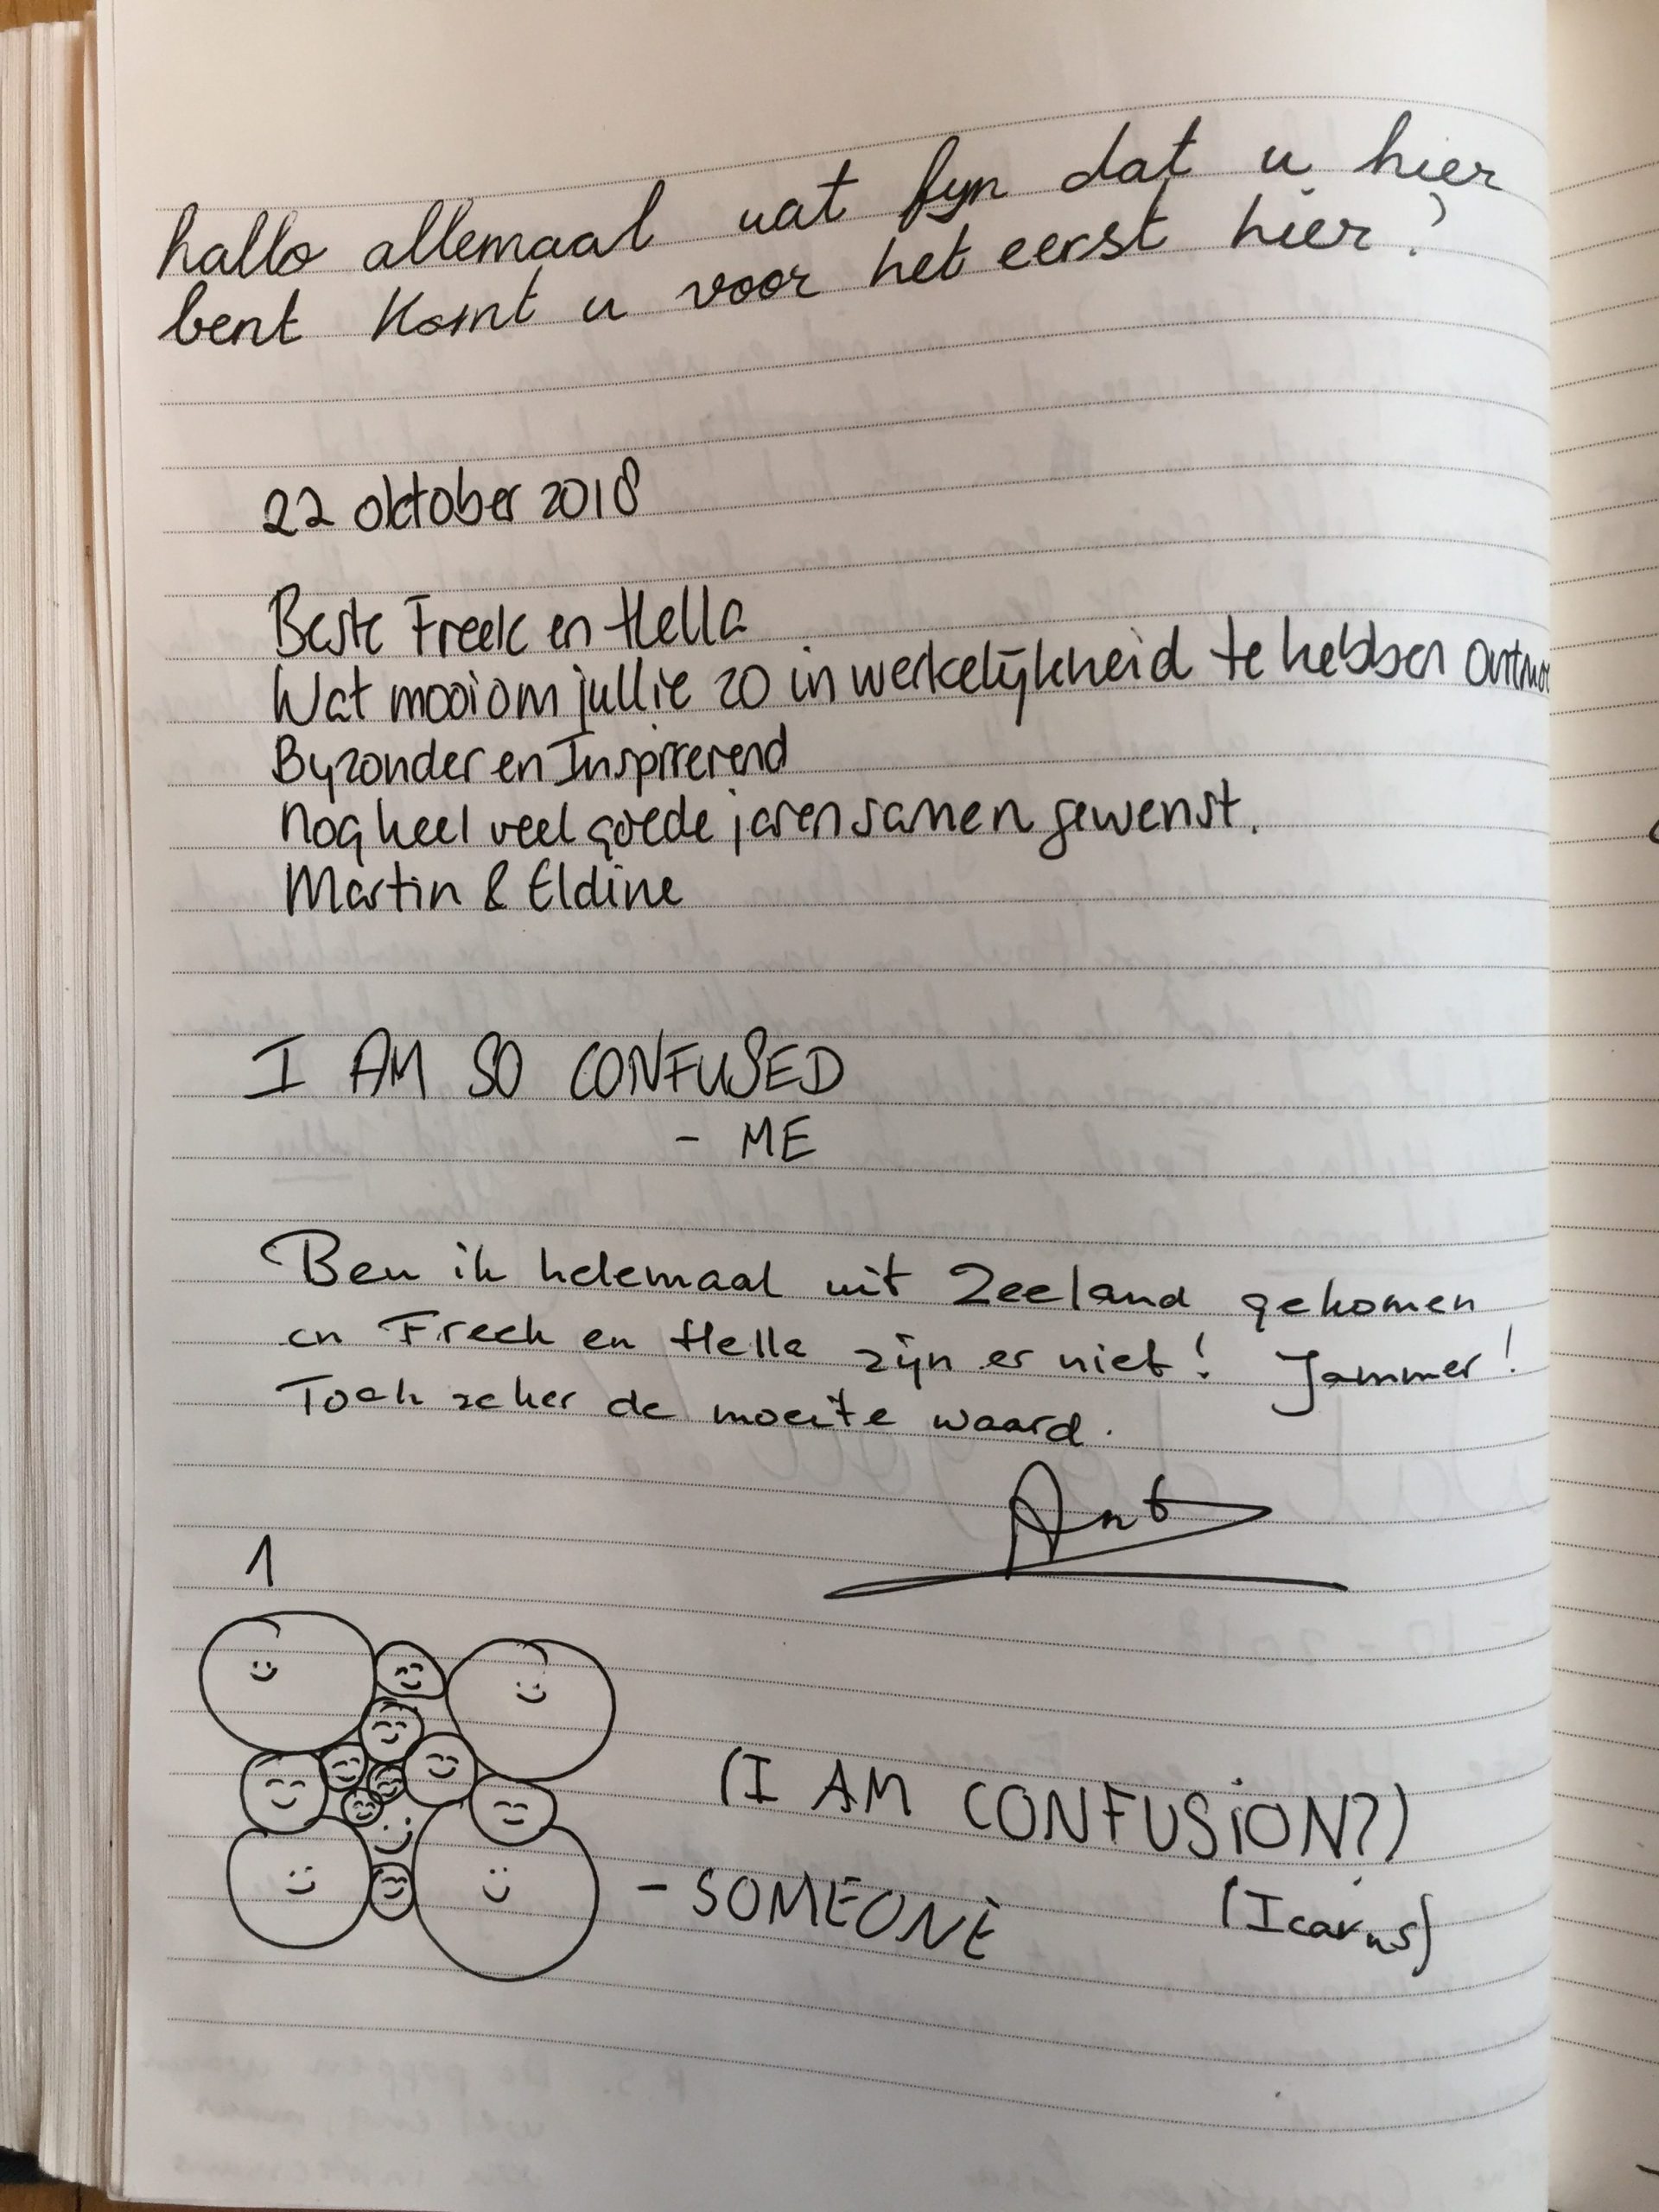 hallo allemaal wat fyn dat u hier
bent Komt u voor het eerst hier?
22 oktober 2018
Beste Freek en Hella
Wat mooi om jullie zo in werkelijkheid te hebben
Byzonder en Inspirerend
Nog heel veel goede jaren samen gewenst.
Martin & Eldine
I AM SO CONFUSED
- ME
Ben ik helemaal uit Zeeland gekomen
en Freek en Hella zijn er niet! Jammer!
Toch zeker de moeite waard.
1
(I AM CONFUSION?)
- SOMEONE
(Icarus)